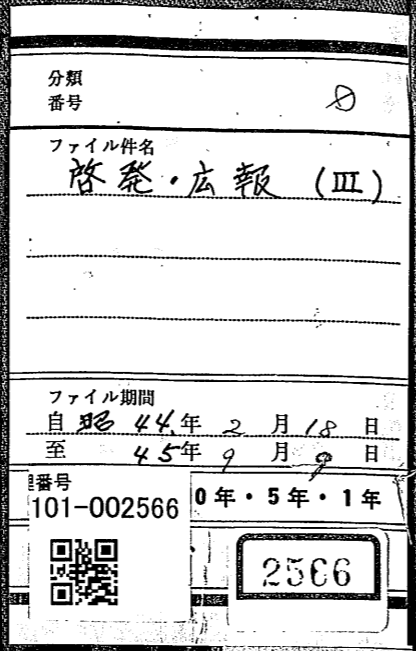 分類
番号
ファイル件名
啓発・広報 (III)
ファイル期間
自 昭 44.年 2 月 18 日
至 45年 9 月 9 日
番号
101-002566
0年・5年・1年
2566